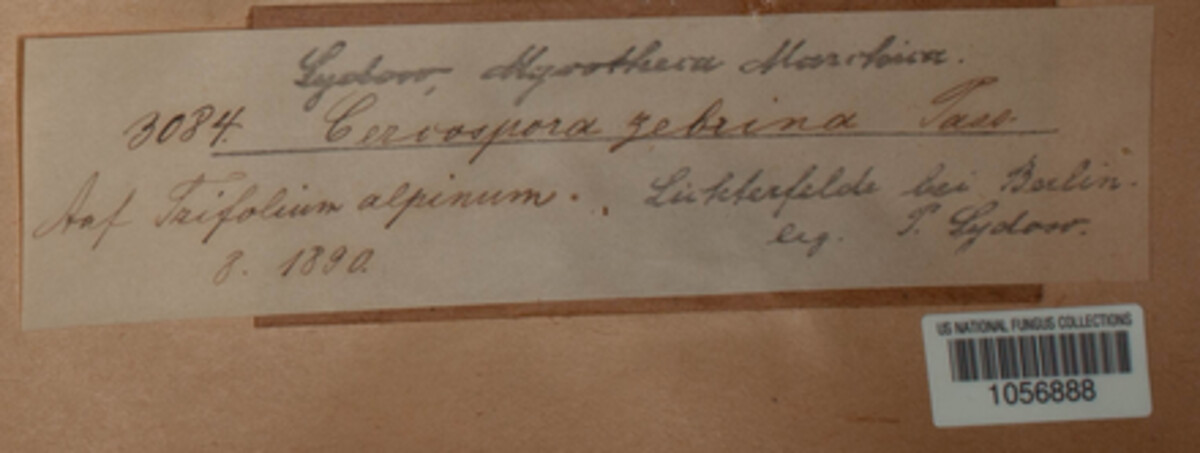 Sydow, Mycotheca Marchica.
3084. Cercospora zebrina Pass.
Auf Trifolium alpinum. Lichterfelde bei Berlin.
8. 1890. leg. P. Sydow.
US NATIONAL FUNGUS COLLECTIONS
1056888